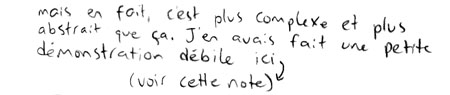 mais en fait, c'est plus complexe et plus
abstrait que ça. J'en avais fait une petite
démonstration débile ici
(voir cette note)